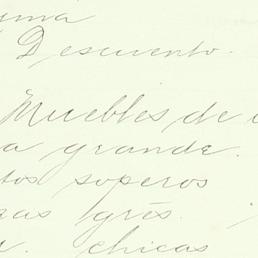 uma
Descuento.
Muebles de
a grande.
tos soperos
zas grés.
chicas